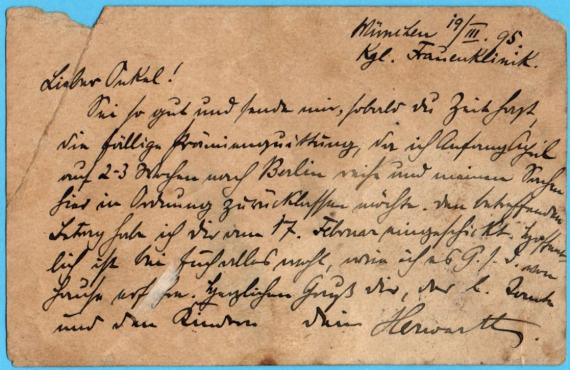 München 19/III. 95.
Kgl. Frauenklinik.
Lieber Onkel!
Sei so gut und sende mir, sobald du Zeit hast,
die fällige Prämienquittung, da ich Anfang April
auf 2-3 Wochen nach Berlin reise und meine Sachen
hier in Ordnung zurücklassen möchte. Den betreffenden
Betrag habe ich dir am 17. Februar eingeschickt. Hoffent-
lich ist bei Euch alles wohl, wie ich es G. s. D. von
Hause erfahre. Herzlichen Gruß dir, der l. Tante
und den Kindern Dein Herwarth.